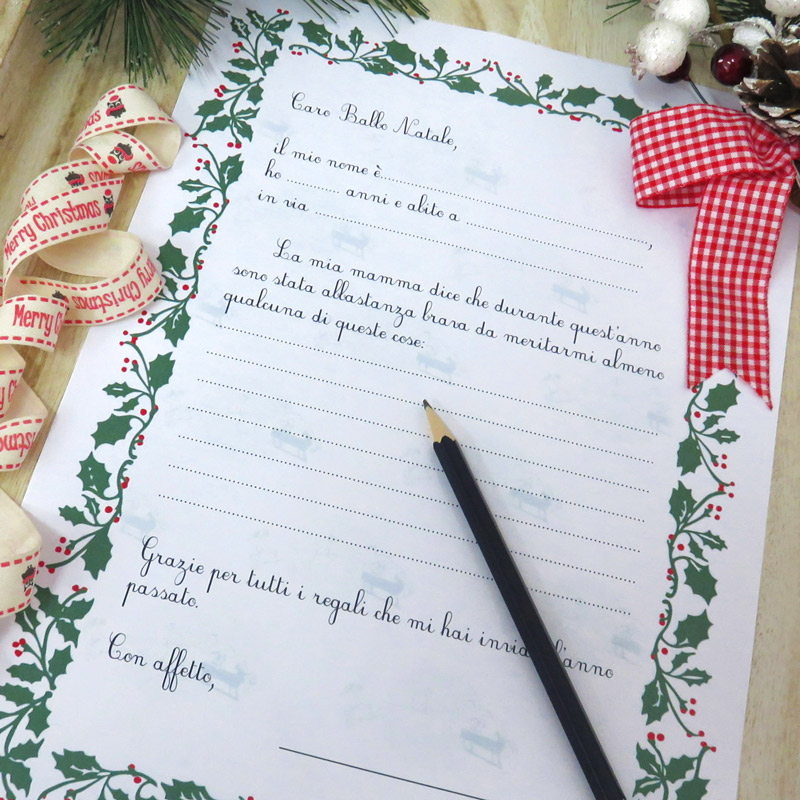 Caro Babbo Natale,
il mio nome è..............................,
ho .......... anni e abito a ..............................
in via ..............................
La mia mamma dice che durante quest'anno
sono stata abbastanza brava da meritarmi almeno
qualcuna di queste cose:
Grazie per tutti i regali che mi hai invia l'anno
passato.
Con affetto,
Merry Christmas
Merry Christmas
Merry